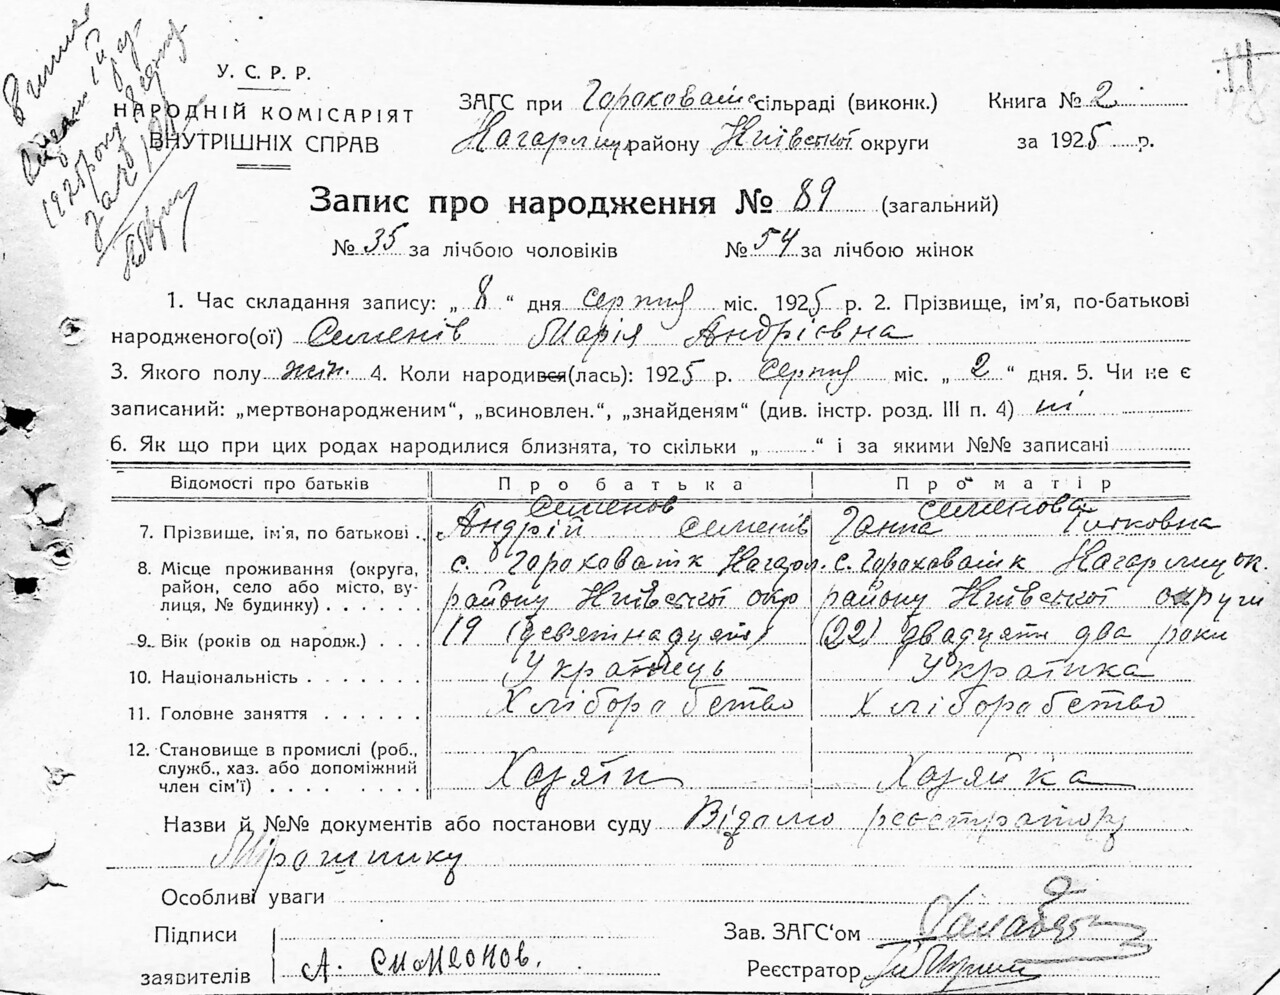 У. С. Р. Р.
НАРОДНІЙ КОМІСАРІЯТ
ВНУТРІШНІХ СПРАВ
ЗАГС при Гороховатс сільраді (виконк.) Книга № 2
району Київської округи за 1925 р.
Запис про народження № 89 (загальний)
№ 35 за лічбою чоловіків № 54 за лічбою жінок
1. Час складання запису: „ 8 “ дня серпня міс. 1925 р. 2. Прізвище, ім'я, по-батькові
народженого(ої) Семенів Марія Андрієвна
3. Якого полу жін. 4. Коли народився(лась): 1925 р. серпня міс. „ 2 “ дня. 5. Чи не є
записаний: „мертвонародженим“, „всиновлен.“, „знайденям“ (див. інстр. розд. III п. 4) ні
6. Як що при цих родах народилися близнята, то скільки „ “ і за якими №№ записані
Відомості про батьків Про батька Про матір
Семенов Семенова
7. Прізвище, ім'я, по батькові . . Андрій Семенів Ганна
8. Місце проживання (округа, район, село або місто, вулиця, № будинку) . . . . . с. Гороховатк с. Гороховатк
району Київської окр району Київської округи
9. Вік (років од народж.) . . . 19 (девятнадцят) (22) двадцять два роки
10. Національність . . . . . . . Українець Українка
11. Головне заняття . . . . . . Хліборабство Хліборабство
12. Становище в промислі (роб., служб., хаз. або допоміжний член сім'ї) . . . . . . . Хазяїн Хазяйка
Назви й №№ документів або постанови суду Відамо реєстратору
Мірошнику
Особливі уваги
Підписи
заявителів А. Симеонов.
Зав. ЗАГС‘ом
Реєстратор